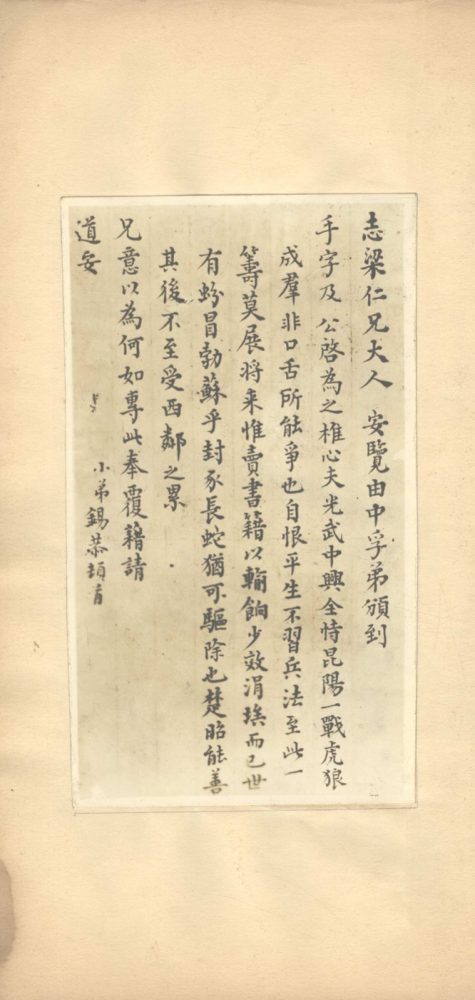 志梁仁兄大人 安覽由中孚弟頒到
手字及 公啓為之椎心夫光武中興全恃昆陽一戰虎狼
成羣非口舌所能爭也自恨平生不習兵法至此一
籌莫展将来惟賣書籍以輸餉少效涓埃而已世
有蚡冒勃蘇乎封豕長蛇猶可驅除也楚昭能善
其後不至受西鄰之累
兄意以為何如專此奉覆藉請
道安
小弟錫恭頓首